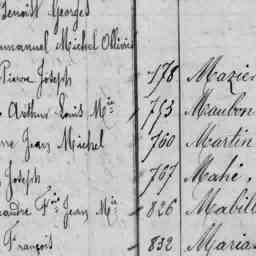 Benoist Georges
mmanuel Michel Ollivier
Pierre Joseph 178 Mazier
Arthur Louis Mie 753 Maubon
Jean Michel 760 Martin
Joseph 767 Mahé,
Fois Jean Mie 826 Mabill
François 832 Maria